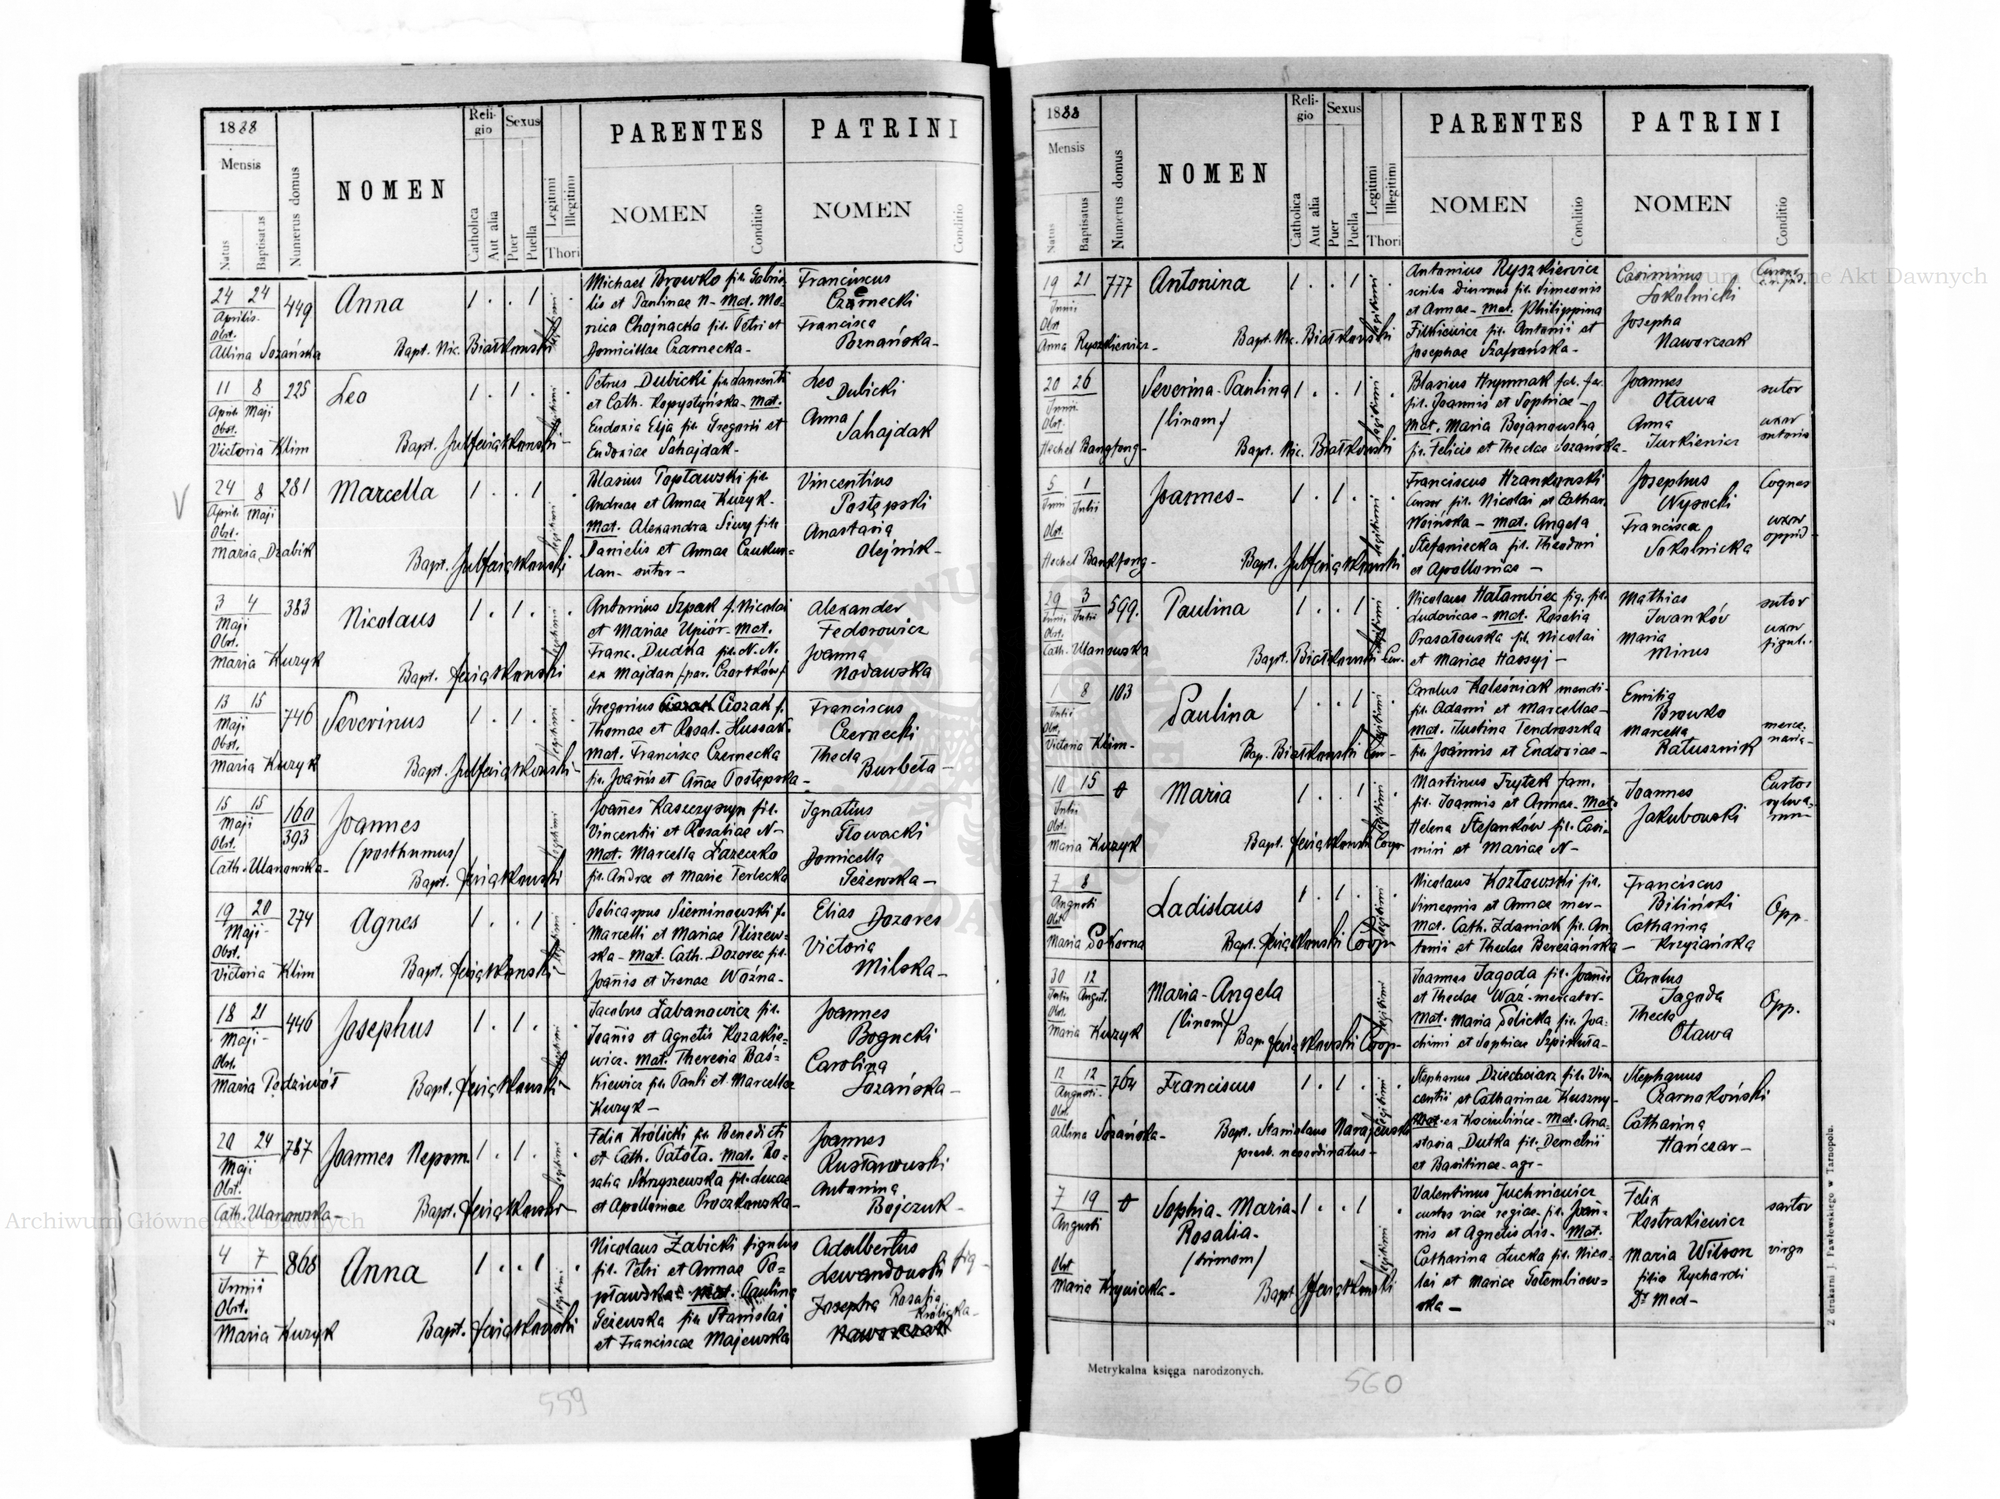 1888
Mensis
Natus
Baptisatus
Numerus domus
NOMEN
Religio
Catholica
Aut alia
Sexus
Puer
Puella
Legitimi
Illegitimi
Thori
PARENTES
NOMEN
Conditio
PATRINI
NOMEN
Conditio
24 24 449 Anna 1 . . 1 .
Aprilis.
Obst.
Albina Sozańska Bapt. Nic. Białkowski
legitimi
Michael Browko fil. Gabrie
lis et Paulinae N- Mat. Mo-
nica Chojnacka fil. Petri et
Domicillae Czarnecka-
Franciscus
Czarnecki
Francisca
Poznańska-
11 8 225 Leo 1 . 1 . .
April. Maji
Obst.
Victoria Klim Bapt.
legitimi
Petrus Dubicki fil. Laurentii
et Cath. Kopystyńska- Mat.
Eudoxia Elja fil. Gregorii et
Eudoxiae Sahajdak-
Leo
Dubicki
Anna
Sahajdak
V
24 8 281 Marcella 1 . . 1 .
April. Maji
Obst.
Maria Drabik Bapt.
legitimi
Blasius Popławski fil.
Andreae et Annae Kuzyk-
Mat. Alexandra Siwy fil.
Danielis et Annae
sutor-
Vincentius
Postępski
Anastasia
Olejnik-
3 4 383 Nicolaus 1 . 1 . .
Maji
Obst.
Maria Kuzyk Bapt.
legitimi
Antonius Szpak f. Nicolai
et Mariae Upiór- Mat.
Franc. Dudka fil. N. N.
ex Majdan /par. Czortków/
Alexander
Fedorowicz
Joanna
Nodawska
13 15 746 Severinus 1 . 1 . .
Maji
Obst.
Maria Kuzyk Bapt.
legitimi
Gregorius Ciszak f.
Thomae et Rosal. Hussak.
Mat. Francisca Czernecka
fil. Joannis et Annae Postępska-
Franciscus
Czernecki
Thecla
Burbeta-
15 15 160 Joannes
Maji 393 (posthumus)
Obst.
Cath. Ulanowska- Bapt.
legitimi
Joannes Kaszczyszyn fil.
Vincentii et Rosaliae N-
Mat. Marcella Łazeczko
fil. Andreae et Mariae Terlecka
Ignatius
Głowacki
Domicella
Jeżewska-
19 20 274 Agnes 1 . . 1 .
Maji-
Obst.
Victoria Klim Bapt.
legitimi
Policarpus Sieminowski f.
Marcelli et Mariae Pliszew-
ska- Mat. Cath. Dozorec fil.
Joannis et Irenae Woźna-
Elias Dozorec
Victoria
Milska-
18 21 446 Josephus 1 . 1 . .
Maji-
Obst.
Maria Pędziwół Bapt.
legitimi
Jacobus Łabanowicz fil.
Joannis et Agnetis Kozakie-
wicz- Mat. Theresia Baś-
kiewicz fil. Pauli et Marcellae
Kuzyk-
Joannes
Bogucki
Carolina
Sozańska-
20 24 787 Joannes Nepom. 1 . 1 . .
Maji
Obst.
Cath. Ulanowska- Bapt.
legitimi
Felix Królicki fil. Benedicti
et Cath. Patoła. Mat. Ro-
salia Skryszewska fil. Lucae
et Apolloniae Proczkowska-
Joannes
Rusławski
Antonina
Bojczuk-
4 7 868 Anna 1 . . 1 .
Junii
Obst.
Maria Kuzyk Bapt.
legitimi
Nicolaus Żabicki figulus
fil. Petri et Annae Po-
pławska- Mat. Paulina
Jeżewska fil. Stanislai
et Franciscae Majewska
Adalbertus
Lewandowski fig-
Josepha Rosalia
Królicka-
Naworczak
559
1888
Mensis
Natus
Baptisatus
Numerus domus
NOMEN
Religio
Catholica
Aut alia
Sexus
Puer
Puella
Legitimi
Illegitimi
Thori
PARENTES
NOMEN
Conditio
PATRINI
NOMEN
Conditio
19 21 777 Antonina 1 . . 1 .
Junii
Obst.
Anna Ryszkiewicz- Bapt. Nic. Białkowski
legitimi
Antonius Ryszkiewicz
scriba diurnus fil. Simeonis
et Annae- Mat. Philippina
Filkiewicz fil. Antonii et
Josephae Szafrańska-
Casimirus
Sokolnicki
Josepha
Naworczak
20 26 Severina-Paulina 1 . . 1 .
Junii (binom)
Obst.
Hechel Bangfong- Bapt. Nic. Białkowski
legitimi
Blasius Hrymnak
fil. Joannis et Sophiae-
Mat. Maria Bojanowska
fil. Felicis et Theclae Sozańska-
Joannes
Otawa
Anna
Jurkiewicz
sutor
uxor
sutoris
5 1 Joannes- 1 . 1 . .
Junii Julii
Obst.
Hechel Bangfong- Bapt.
legitimi
Franciscus Hrankowski
cursor fil. Nicolai et Cathar.
Woińska- Mat. Angela
Stefaniecka fil. Theodori
et Apolloniae-
Josephus
Wysocki
Francisca
Sokolnicka
Cognes
uxor
oppid-
29 3 599. Paulina 1 . . 1 .
Junii Julii
Obst.
Cath. Ulanowska Bapt. Białkowski
legitimi
Nicolaus Hałambiec fig. fil.
Ludovicae- Mat. Rosalia
Prasałowska fil. Nicolai
et Mariae
Mathias
Iwanków
Maria
Mirus
sutor
uxor
figul.
1 8 103 Paulina 1 . . 1 .
Julii
Obst.
Victoria Klim- Bap. Białkowski
legitimi
Carolus Koleśniak mendi-
fil. Adami et Marcellae-
Mat. Justina Tendroszka
fil. Joannis et Eudoxiae-
Emilia
Browko
Marcella
Ratusznik
merce-
naria-
10 15 0 Maria 1 . . 1 .
Julii
Obst.
Maria Kuzyk Bapt.
legitimi
Martinus Frytek fam.
fil. Joannis et Annae- Mat.
Helena Stefanków fil. Casi-
miri et Mariae N-
Joannes
Jakubowski
Custos
sylva-
rum-
7 8 Ladislaus 1 . 1 . .
Augusti
Obst.
Maria Sokorna Bapt.
legitimi
Nicolaus Kozłowski fil.
Simeonis et Annae mer-
Mat. Cath. Zdaniak fil. An-
tonii et Theclae Bereżańska-
Franciscus
Biliński
Catharina
Krzyżańska
Opp-
30 12 Maria-Angela
Julii August.
Obst. (binom)
Maria Kuzyk
legitimi
Joannes Jagoda fil. Joannis
et Theclae Waż- mercator-
Mat. Maria Solicka fil. Joa-
chimi et Sophiae
Carolus
Jagoda
Thecla
Otawa
Opp.
12 12 764 Franciscus 1 . 1 . .
Augusti-
Obst.
Albina Sozańska- Bapt. Stanislaus Narajewski
presb. neoordinatus-
legitimi
Stephanus Dziechciarz fil. Vin
centii et Catharinae Kuszny-
ex Kociubińce- Mat. Ana-
stasia Dutka fil. Demetrii
et Barbarae- agr-
Stephanus
Czarnokoński
Catharina
Hańczar-
7 19 0 Sophia-Maria- 1 . . 1 .
Augusti Rosalia-
(trinom)
Obst.
Maria Krynicka- Bapt.
legitimi
Valentinus Juchniewicz
custos viae regiae- fil. Joan-
nis et Agnetis Lis- Mat.
Catharina Łucka fil. Nico-
lai et Mariae Gołembiow-
ska-
Felix
Kostrakiewicz
Maria Wilson
filia Rychardi
Dr Med-
sartor
virgo
Metrykalna księga narodzonych.
560
Z drukarni J. Pawłowskiego w Tarnopolu.
Archiwum Główne Akt Dawnych
Archiwum Główne Akt Dawnych